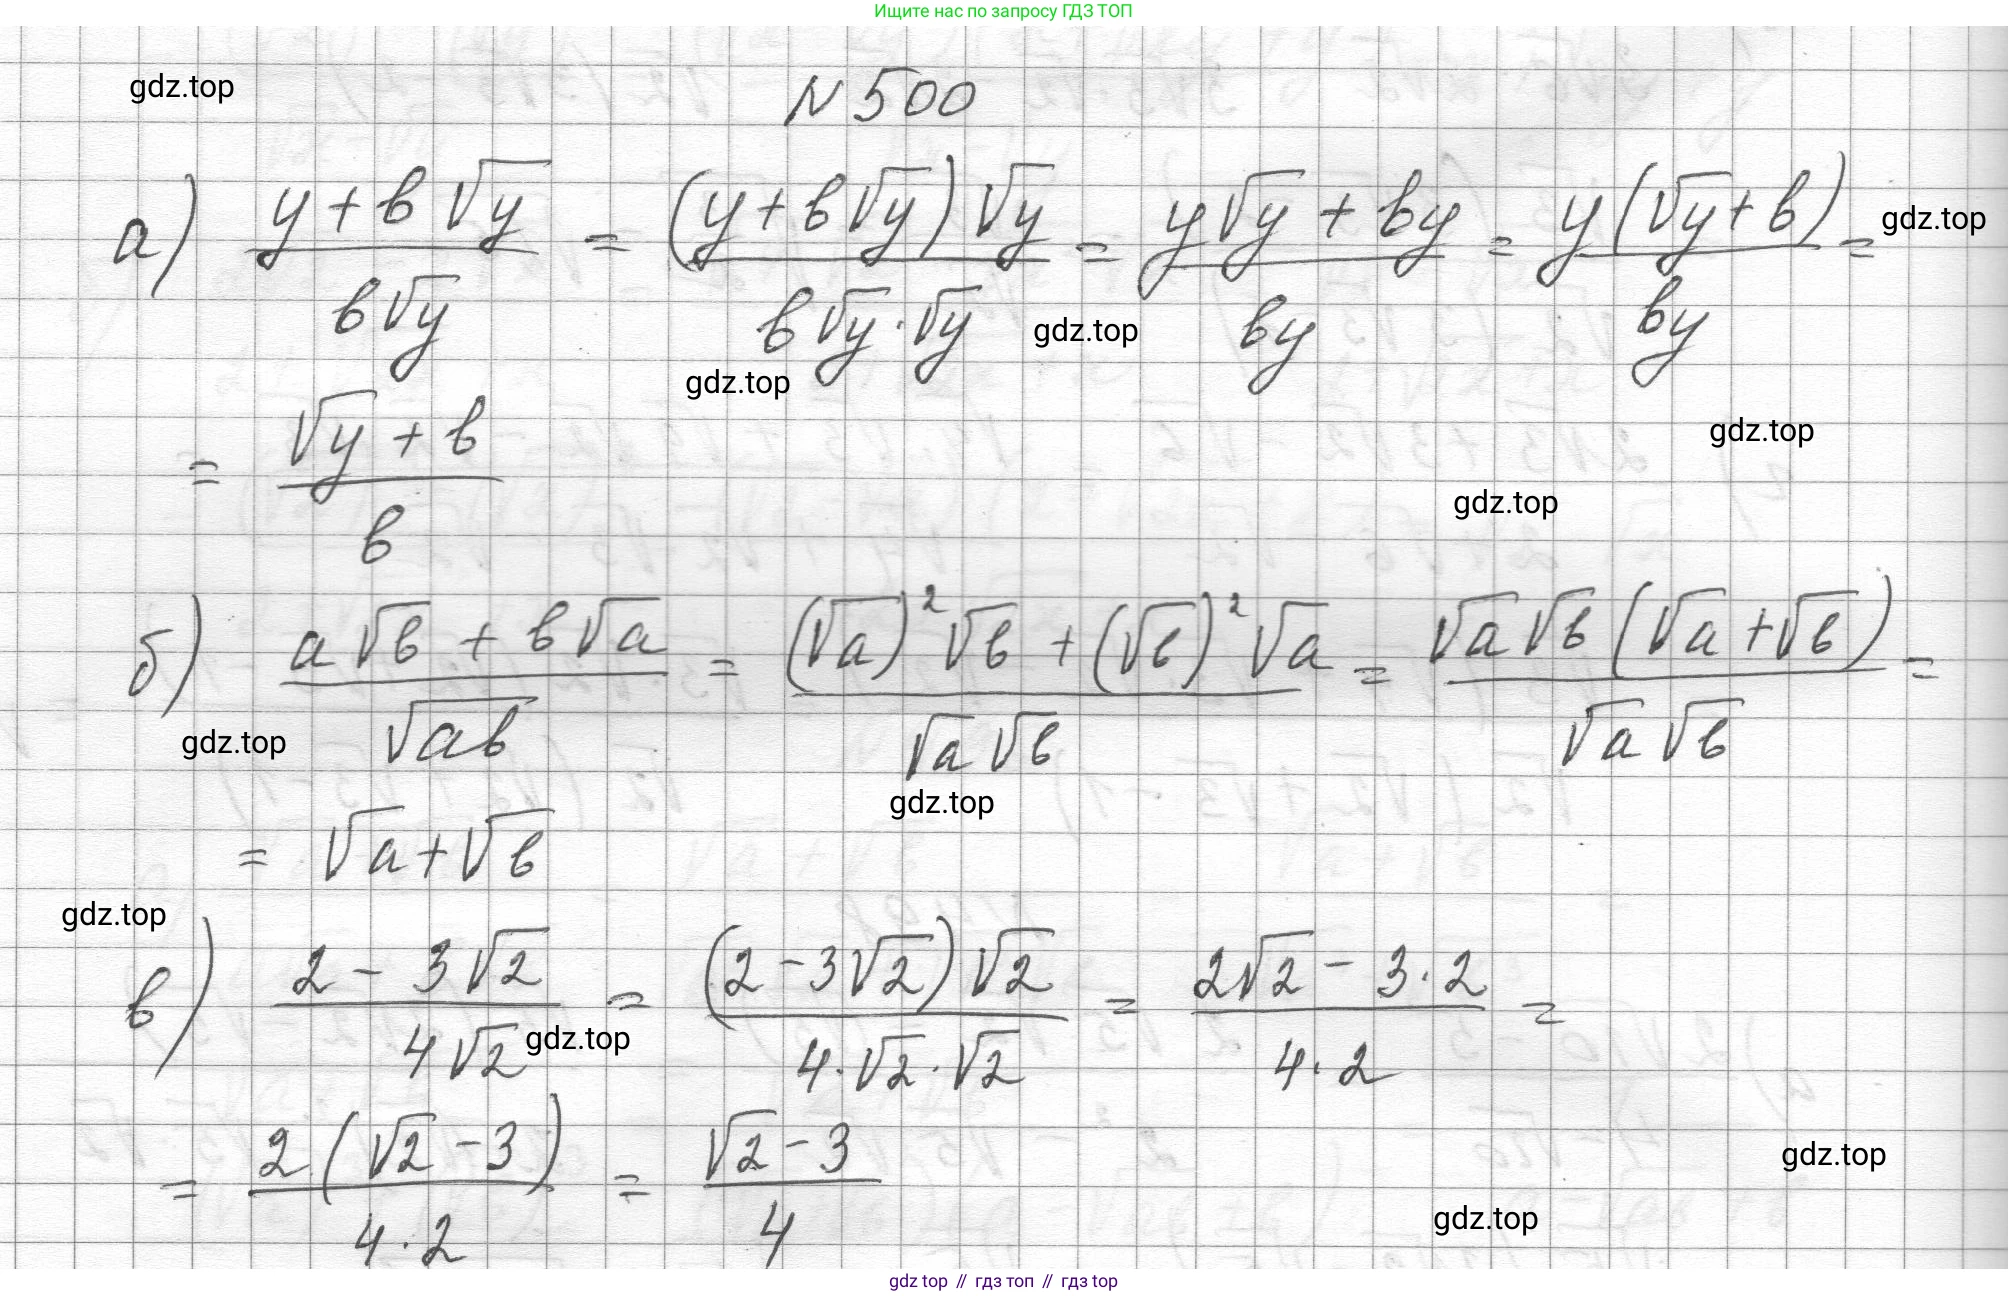 Ищите нас по запросу ГДЗ ТОП
gdz.top
N 500
а) (y + b√y)/(b√y) = ((y + b√y)√y)/(b√y·√y) = (y√y + by)/(by) = (y(√y + b))/(by) =
gdz.top
gdz.top
gdz.top
= (√y + b)/b
gdz.top
gdz.top
б) (a√b + b√a)/√ab = ((√a)²√b + (√b)²√a)/(√a√b) = (√a√b(√a + √b))/(√a√b) =
gdz.top
gdz.top
= √a + √b
gdz.top
в) (2 - 3√2)/(4√2) = ((2 - 3√2)√2)/(4·√2·√2) = (2√2 - 3·2)/(4·2) =
gdz.top
= (2(√2 - 3))/(4·2) = (√2 - 3)/4
gdz.top
gdz.top
gdz top // гдз топ // гдз top